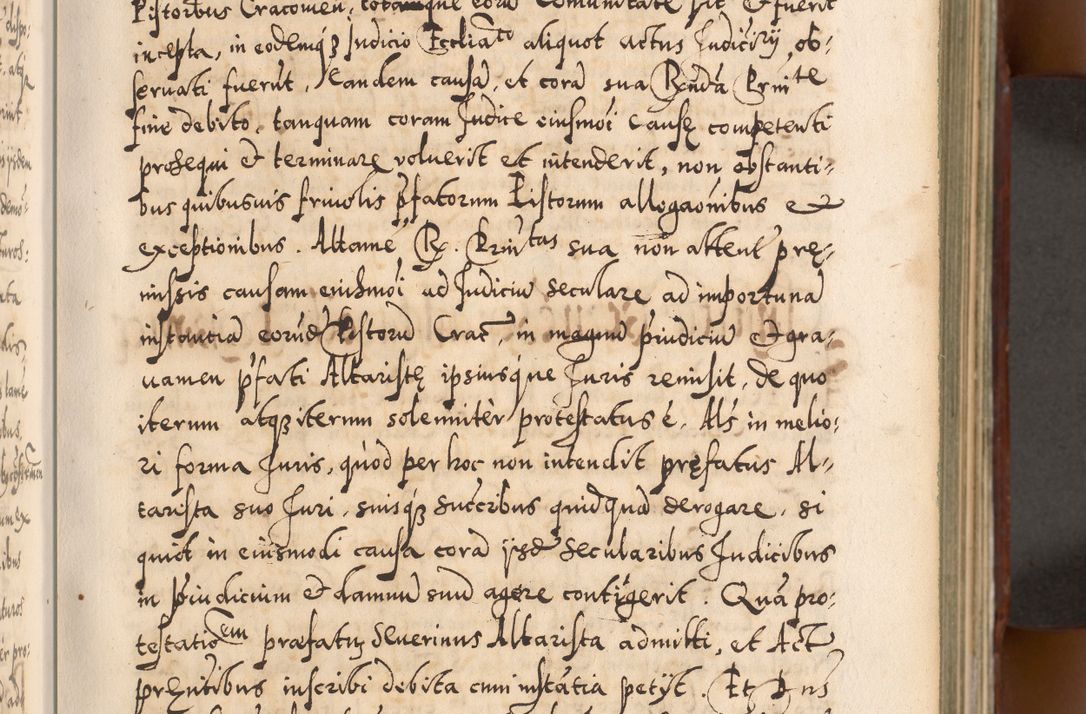 Pistorbus Cracovien, totamque eorū Comunitatē sit & fuerit
incepta, in eodemq́ꝫ Judicio Eccliatō aliquot actus Judicirÿ ob-
seruati fuerūt, Tandem causā, et corā sua Rndā Prnite
fine debito, tanquam coram Judice eiusmōi causę competenti
prosequi & terminare voluerit et intenderit, non obstanti-
bus quibusuis friuolis pfatorum Pistorum allegaōnibus &
exceptionibus. Attamē R. Prnitas sua nōn attent pre-
missis causam eiusmōi ad Judiciū seculare ad importunā
instantiā eorūdē Pistorū Crac, in magnū piudiciū & gra-
uamen pfati Altaristę ipsiusque Juris remisit, de quo
iterum atqꝫ iterum solemniter protestatus ē. Als in melio-
ri forma Juris, quod per hoc non intendit pręfatus Al-
tarista suo Juri, suisqꝫ succribus quidquā derogare, si
quid in eiusmodi causa corā ÿsdē Secularibus Judicibus
in piudicium & damnū suū agere contigerit. Quā pro-
testatioem præfatus Seuerinus Altarista admitti, et Act
pręntibus inscribi debita cum instātia petÿt. Et Dns